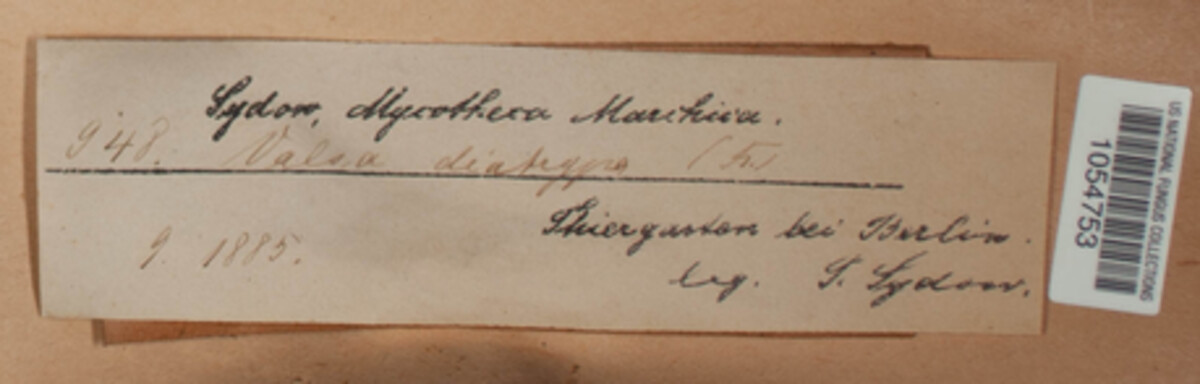 Sydow, Mycotheca Marchica.
948. Valsa diatrypa (Fr.)
Thiergarten bei Berlin.
9. 1885.
leg. P. Sydow.
US NATIONAL FUNGUS COLLECTIONS
1054753